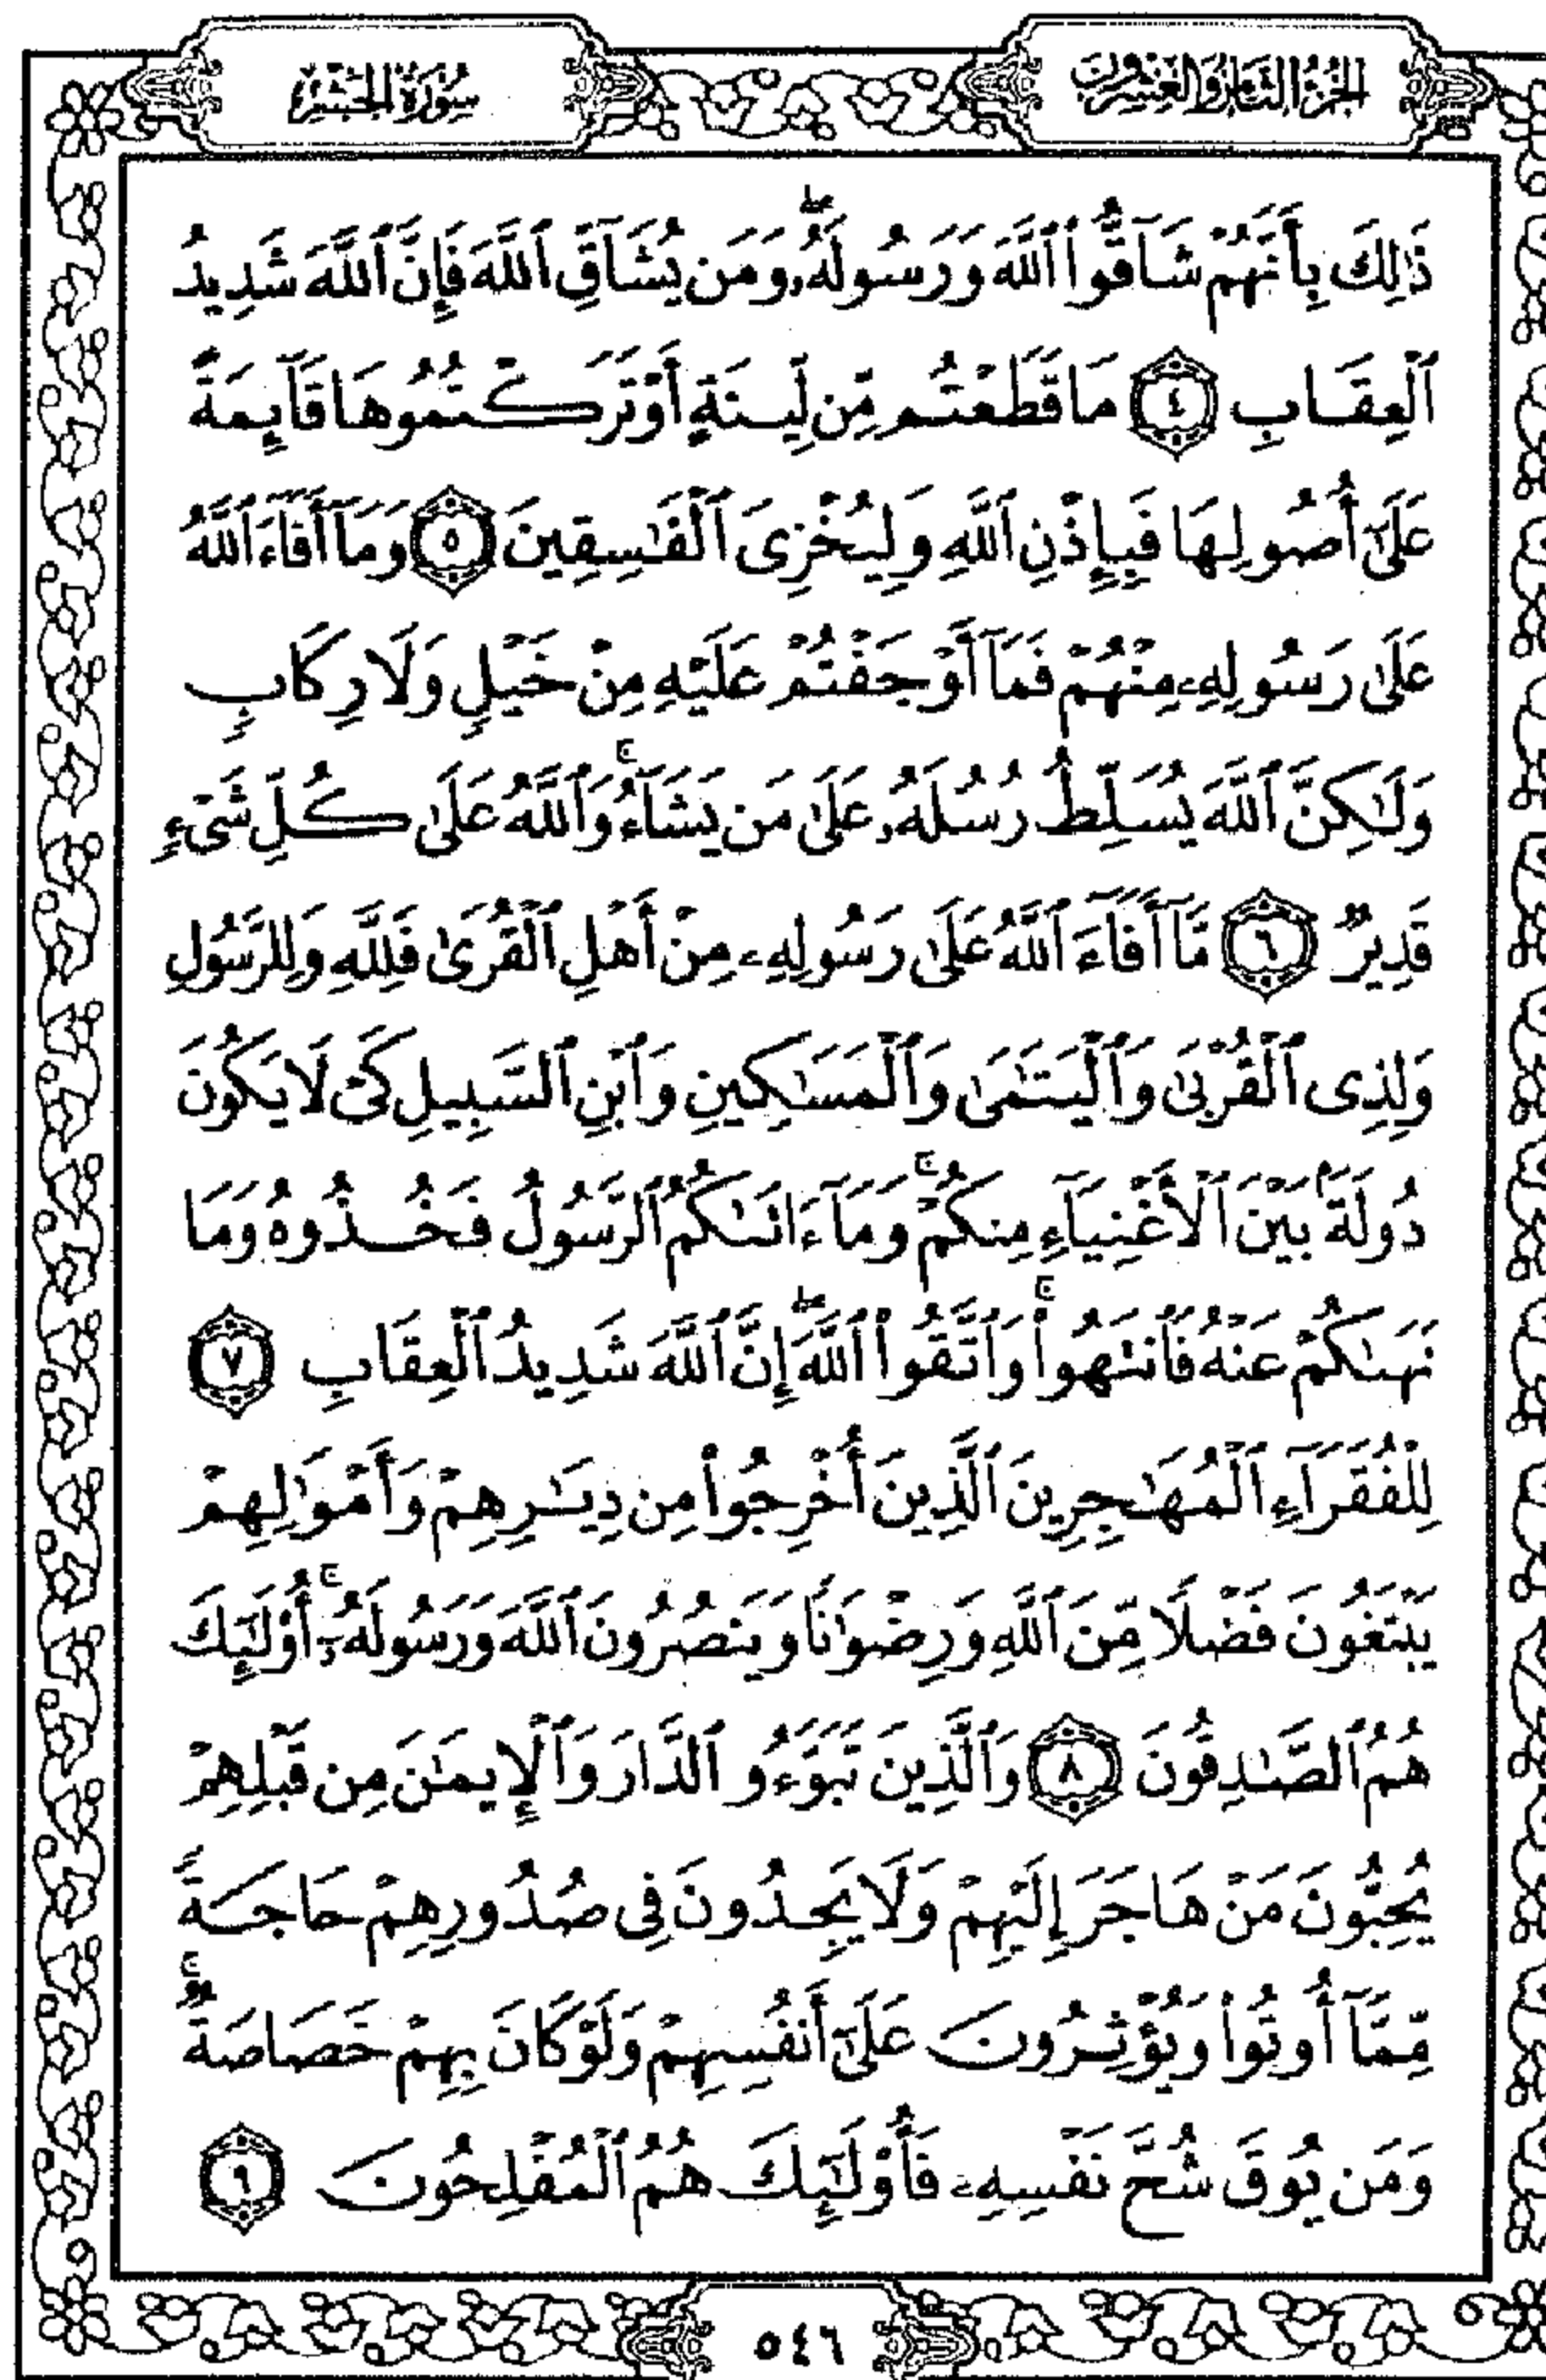 الجزء الثامن والعشرون
سورة الحشر
ذَٰلِكَ بِأَنَّهُمْ شَآقُّوا۟ ٱللَّهَ وَرَسُولَهُۥۖ وَمَن يُشَآقِّ ٱللَّهَ فَإِنَّ ٱللَّهَ شَدِيدُ
ٱلْعِقَابِ ٤ مَا قَطَعْتُم مِّن لِّينَةٍ أَوْ تَرَكْتُمُوهَا قَآئِمَةً
عَلَىٰٓ أُصُولِهَا فَبِإِذْنِ ٱللَّهِ وَلِيُخْزِىَ ٱلْفَـٰسِقِينَ ٥ وَمَآ أَفَآءَ ٱللَّهُ
عَلَىٰ رَسُولِهِۦ مِنْهُمْ فَمَآ أَوْجَفْتُمْ عَلَيْهِ مِنْ خَيْلٍ وَلَا رِكَابٍ
وَلَـٰكِنَّ ٱللَّهَ يُسَلِّطُ رُسُلَهُۥ عَلَىٰ مَن يَشَآءُۚ وَٱللَّهُ عَلَىٰ كُلِّ شَىْءٍ
قَدِيرٌ ٦ مَّآ أَفَآءَ ٱللَّهُ عَلَىٰ رَسُولِهِۦ مِنْ أَهْلِ ٱلْقُرَىٰ فَلِلَّهِ وَلِلرَّسُولِ
وَلِذِى ٱلْقُرْبَىٰ وَٱلْيَتَـٰمَىٰ وَٱلْمَسَـٰكِينِ وَٱبْنِ ٱلسَّبِيلِ كَىْ لَا يَكُونَ
دُولَةًۢ بَيْنَ ٱلْأَغْنِيَآءِ مِنكُمْۚ وَمَآ ءَاتَىٰكُمُ ٱلرَّسُولُ فَخُذُوهُ وَمَا
نَهَىٰكُمْ عَنْهُ فَٱنتَهُوا۟ۚ وَٱتَّقُوا۟ ٱللَّهَۖ إِنَّ ٱللَّهَ شَدِيدُ ٱلْعِقَابِ ٧
لِلْفُقَرَآءِ ٱلْمُهَـٰجِرِينَ ٱلَّذِينَ أُخْرِجُوا۟ مِن دِيَـٰرِهِمْ وَأَمْوَٰلِهِمْ
يَبْتَغُونَ فَضْلًا مِّنَ ٱللَّهِ وَرِضْوَٰنًا وَيَنصُرُونَ ٱللَّهَ وَرَسُولَهُۥٓۚ أُو۟لَـٰٓئِكَ
هُمُ ٱلصَّـٰدِقُونَ ٨ وَٱلَّذِينَ تَبَوَّءُو ٱلدَّارَ وَٱلْإِيمَـٰنَ مِن قَبْلِهِمْ
يُحِبُّونَ مَنْ هَاجَرَ إِلَيْهِمْ وَلَا يَجِدُونَ فِى صُدُورِهِمْ حَاجَةً
مِّمَّآ أُوتُوا۟ وَيُؤْثِرُونَ عَلَىٰٓ أَنفُسِهِمْ وَلَوْ كَانَ بِهِمْ خَصَاصَةٌۚ
وَمَن يُوقَ شُحَّ نَفْسِهِۦ فَأُو۟لَـٰٓئِكَ هُمُ ٱلْمُفْلِحُونَ ٩
٥٤٦